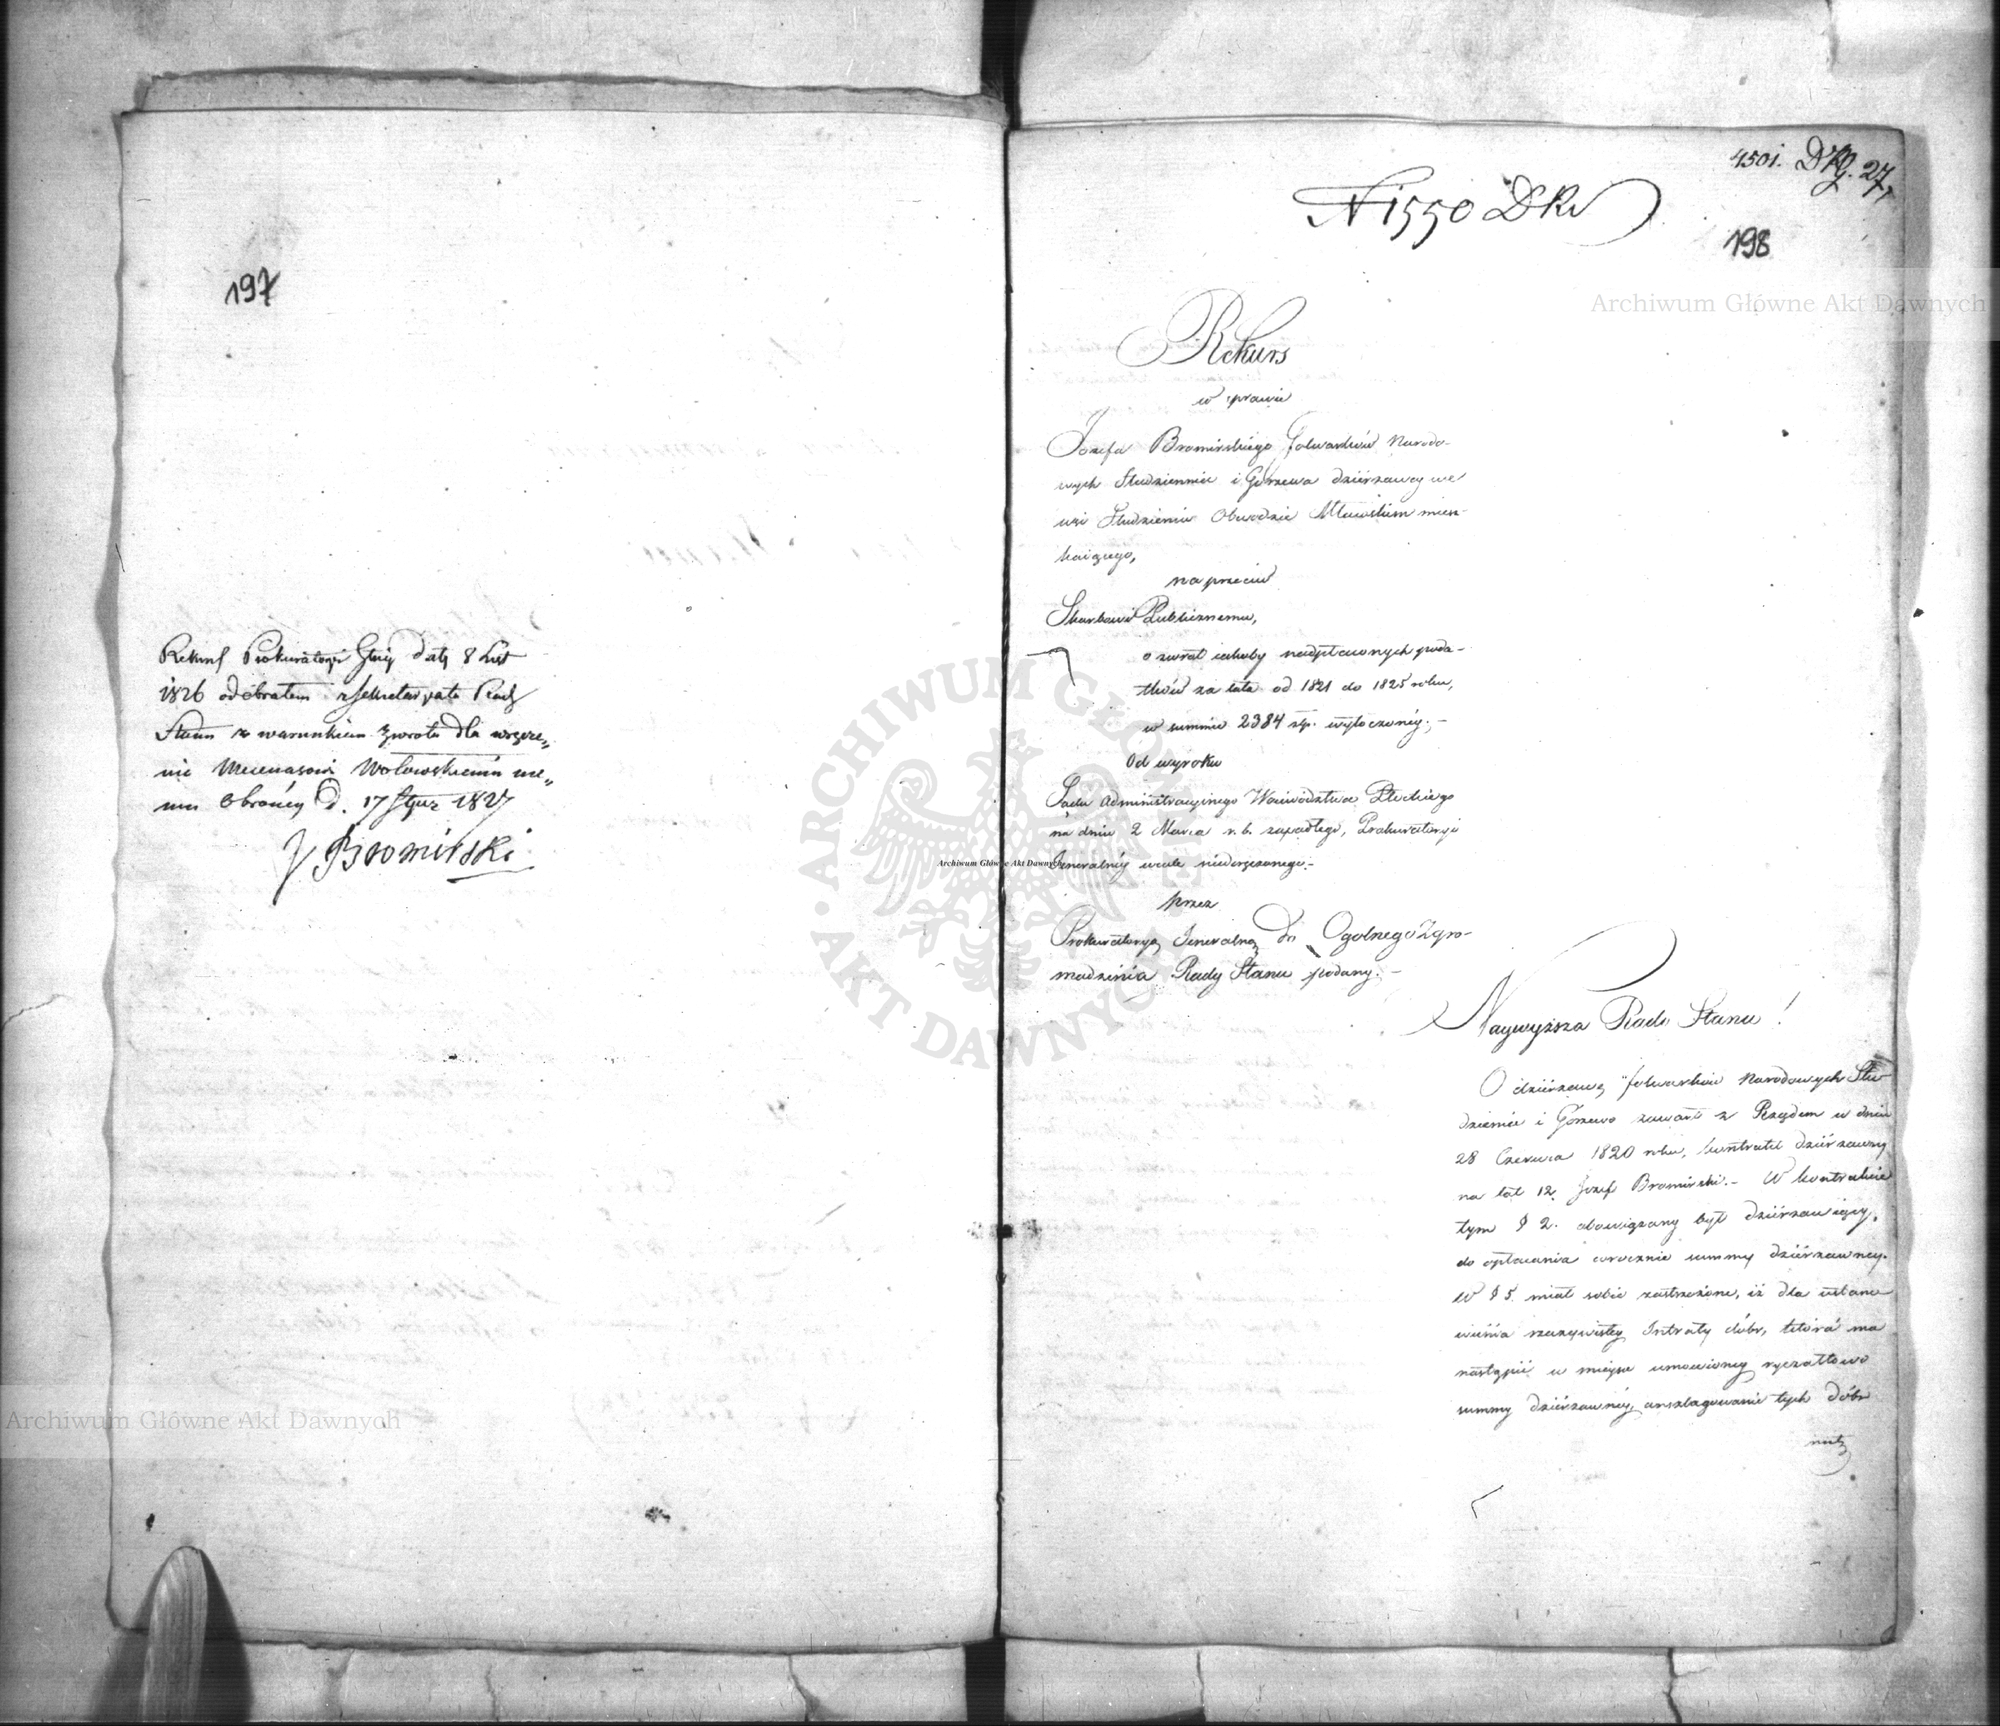 197
Rekurs Prokuratoryi Glnéy daty 8 List
1826 odebrałem z Sekretaryatu Rady
Stanu z warunkiem zwrotu dla wręcze„
nia Mecenasowi Wołowskiemu me„
mu Obrońcy d. 17 Stycz 1827
J Bromirski
4501. DKg. 27,
N 1550 DKr
198
Rekurs
w sprawie
Jozefa Bromirskiego folwarków Narodo-
wych Studzieniec i Gorzewa dzierżawcy we
wsi Studzieniu Obwodzie Mławskim miesz-
kaiącego,
na przeciw
Skarbowi Publicznemu,
o zwrot iakoby nadpłaconych poda-
tków za lata od 1821 do 1825 roku,
w summie 2384 złp. wytoczonéy; -
Od wyroku
Sądu Administracyinego Woiewództwa Płockiego
na dniu 2 Marca r. b. zapadłego, Prokuratoryi
Jeneralnéy wcale niedoręczonego. -
przez
Prokuratoryą Jeneralną do Ogolnego Zgro-
madzenia Rady Stanu podany. -
Naywyższa Rado Stanu!
O dzierżawę folwarków Narodowych Stu-
dzieniec i Gorzewo zawarł z Rządem w dniu
28 Czerwca 1820 roku, kontrakt dzierżawny
na lat 12. Jozef Bromirski. - W kontrakcie
tym § 2. obowiązany był dzierżawiący,
do opłacania corocznie summy dzierżawney.
W § 5. miał sobie zastrzeżone, iż dla ustano
wienia rzeczywistey Intraty dóbr, która ma
nastąpić w mieysce umowioney ryczałtowo
summy dzierżawnéy, anszlagowanie tych dóbr
Archiwum Główne Akt Dawnych
Archiwum Główne Akt Dawnych
Archiwum Główne Akt Dawnych
ARCHIWUM GŁÓWNE AKT DAWNYCH